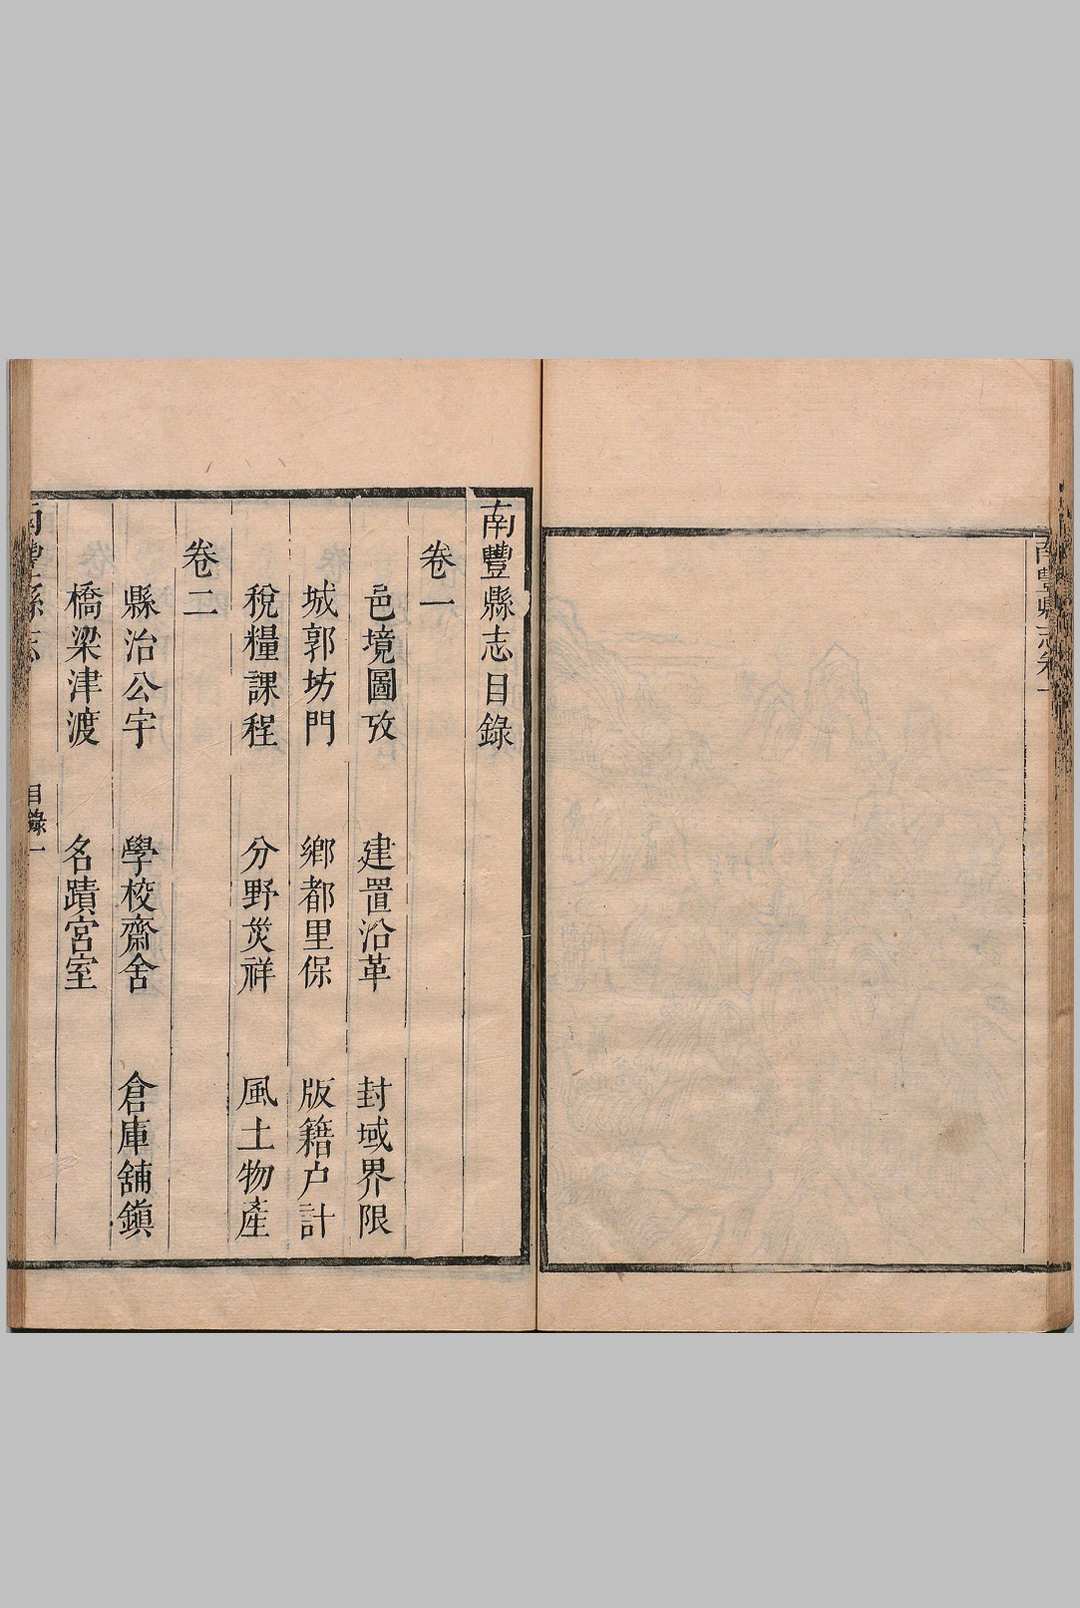 南豐縣志卷一
南豐縣志目錄
卷一
邑境圖攷 建置沿革 封域界限
城郭坊門 鄉都里保 版籍户計
稅糧課程 分野災祥 風土物產
卷二
縣治公宇 學校齋舍 倉庫舖鎮
橋梁津渡 名蹟宮室
南豐縣志 目錄一